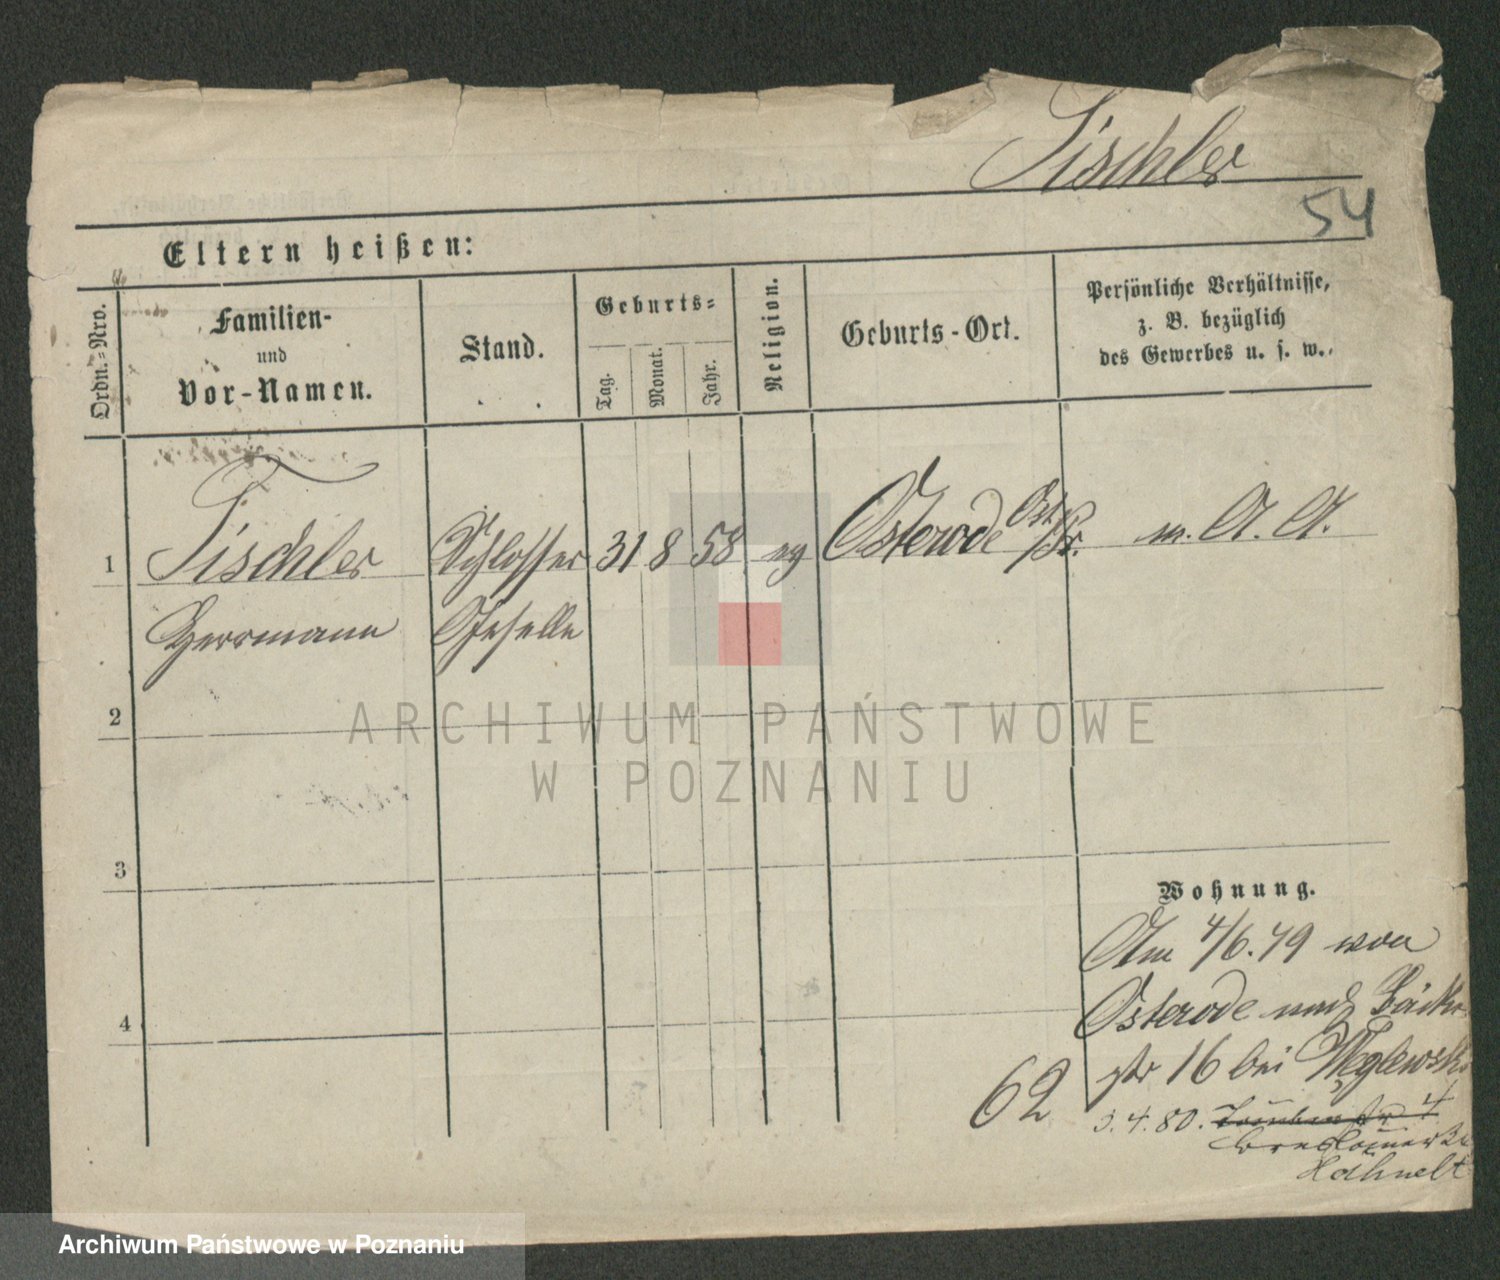 Tischler
54
Eltern heißen:
Ordn.-Nro.
Familien-
und
Vor-Namen.
Stand.
Geburts-
Tag.
Monat.
Jahr.
Religion.
Geburts-Ort.
Persönliche Verhältnisse,
z. B. bezüglich
des Gewerbes u. s. w.
1 Tischler Schlosser 31 8 58 ev Osterode Ost/Pr. m. A. A.
Herrmann Geselle
2
3
4
Wohnung.
Am 4/6.79 von
Osterode nach Bäcker
str 16 bei Węglewski
62
3.4.80. Taubenstr 4
Breslauerstr
Hähnelt
ARCHIWUM PAŃSTWOWE
W POZNANIU
Archiwum Państwowe w Poznaniu